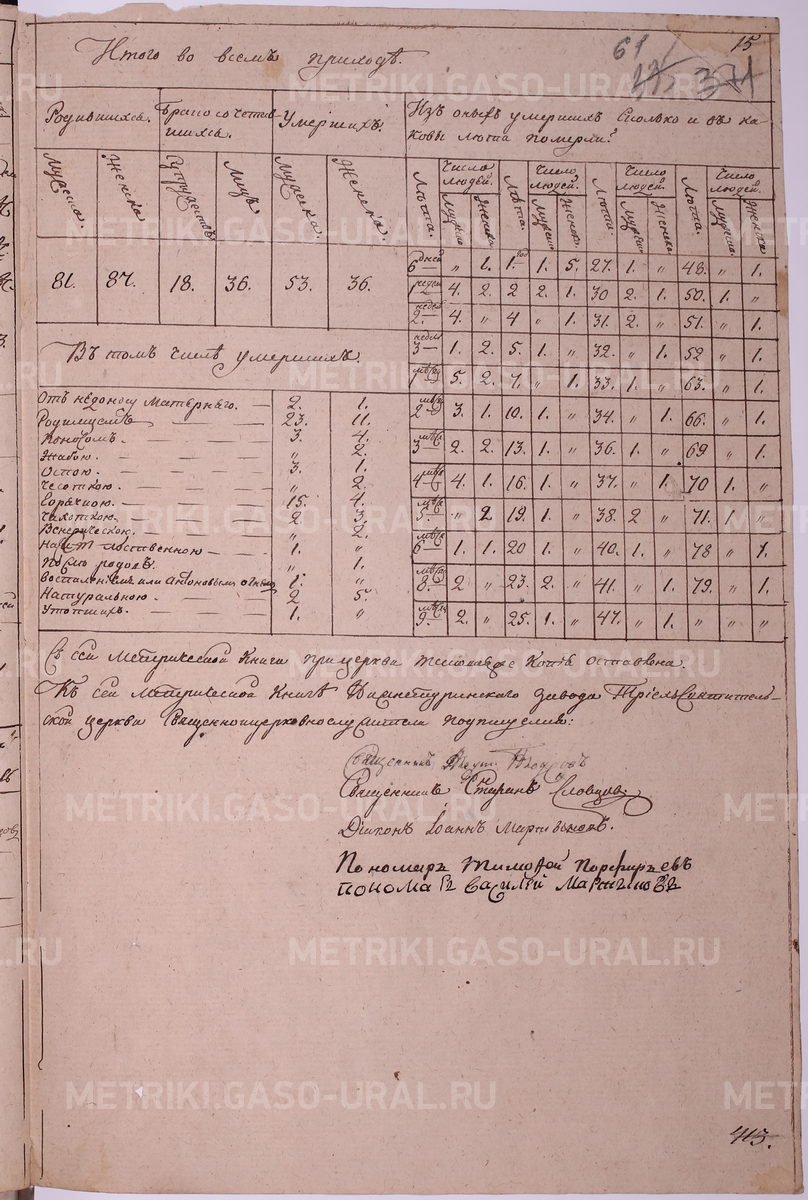 15
61
371
Итого во всемъ приходѣ.
Родившихся. Бракосочетав- Умершихъ. Изъ оныхъ умершихъ сколько и въ ка-
шихся. ковы лѣта померли?
Мужеска. Женска. Супружествъ Лицъ Мужеска. Женска. Лѣта. Число людей. Лѣта. Число людей. Лѣта. Число людей. Лѣта. Число людей.
Мужеска Женска Мужеска Женска Мужеска Женска Мужеска Женска
81. 87. 18. 36. 53. 36.
6 дней „ 1. 1. год 1. 5. 27. 1. „ 48. „ 1.
1 недел 4. 2. 2 2. 1. 30 2. 1. 50. 1. „
2. недел 4. „ 4 „ 1. 31. 2. „ 51. „ 1.
3 недел 1. 2. 5. 1. „ 32. „ 1. 52 „ 1.
1 мѣсец 5. 2. 7. „ 1. 33. 1. „ 63. „ 1.
2 3. 1. 10. 1. „ 34. „ 1. 66. „ 1.
3 2. 2. 13. 1. „ 36. 1. „ 69 „ 1.
4 4. 1. 16. 1. „ 37. „ 1. 70 1. „
5. „ 2 19. 1. „ 38. 2 „ 71. 1 „
6 1. 1. 20 1. „ 40. 1. „ 78 „ 1.
8. 2 „ 23. 2. „ 41. „ 1. 79. „ 1.
9. 2. „ 25. 1. „ 47. „ 1. „ „ „
Въ томъ числѣ умершихъ.
Отъ недоносу матерняго. 2. 1.
Родимцемъ 23. 11.
3. 4.
Жабою. „ 2.
Оспою. 3. 1.
Чесоткою. „ 2.
Горячкою. 15. 4.
Чахоткою. 2 3.
Венерическою. „ 2.
1. „
После родовъ. „ 1.
Воспаленіемъ или Антоновымъ огнемъ 1. „
Натуральною. 2 5.
Утопшихъ. 1. „
Съ сей Метрической Книги при церкви копія оставлена.
Къ сей Метрической Книгѣ Нижнетуринскаго завода Трехъ Святитель-
ской церкви Священноицерковнослужители подписуемся:
Священникъ
Священникъ Стефанъ Словцовъ
Діаконъ Іоаннъ Мартыновъ.
Пономарь Тимофей Порфирьевъ
пономарь василій Мартыновъ
413.
METRIKI.GASO-URAL.RU